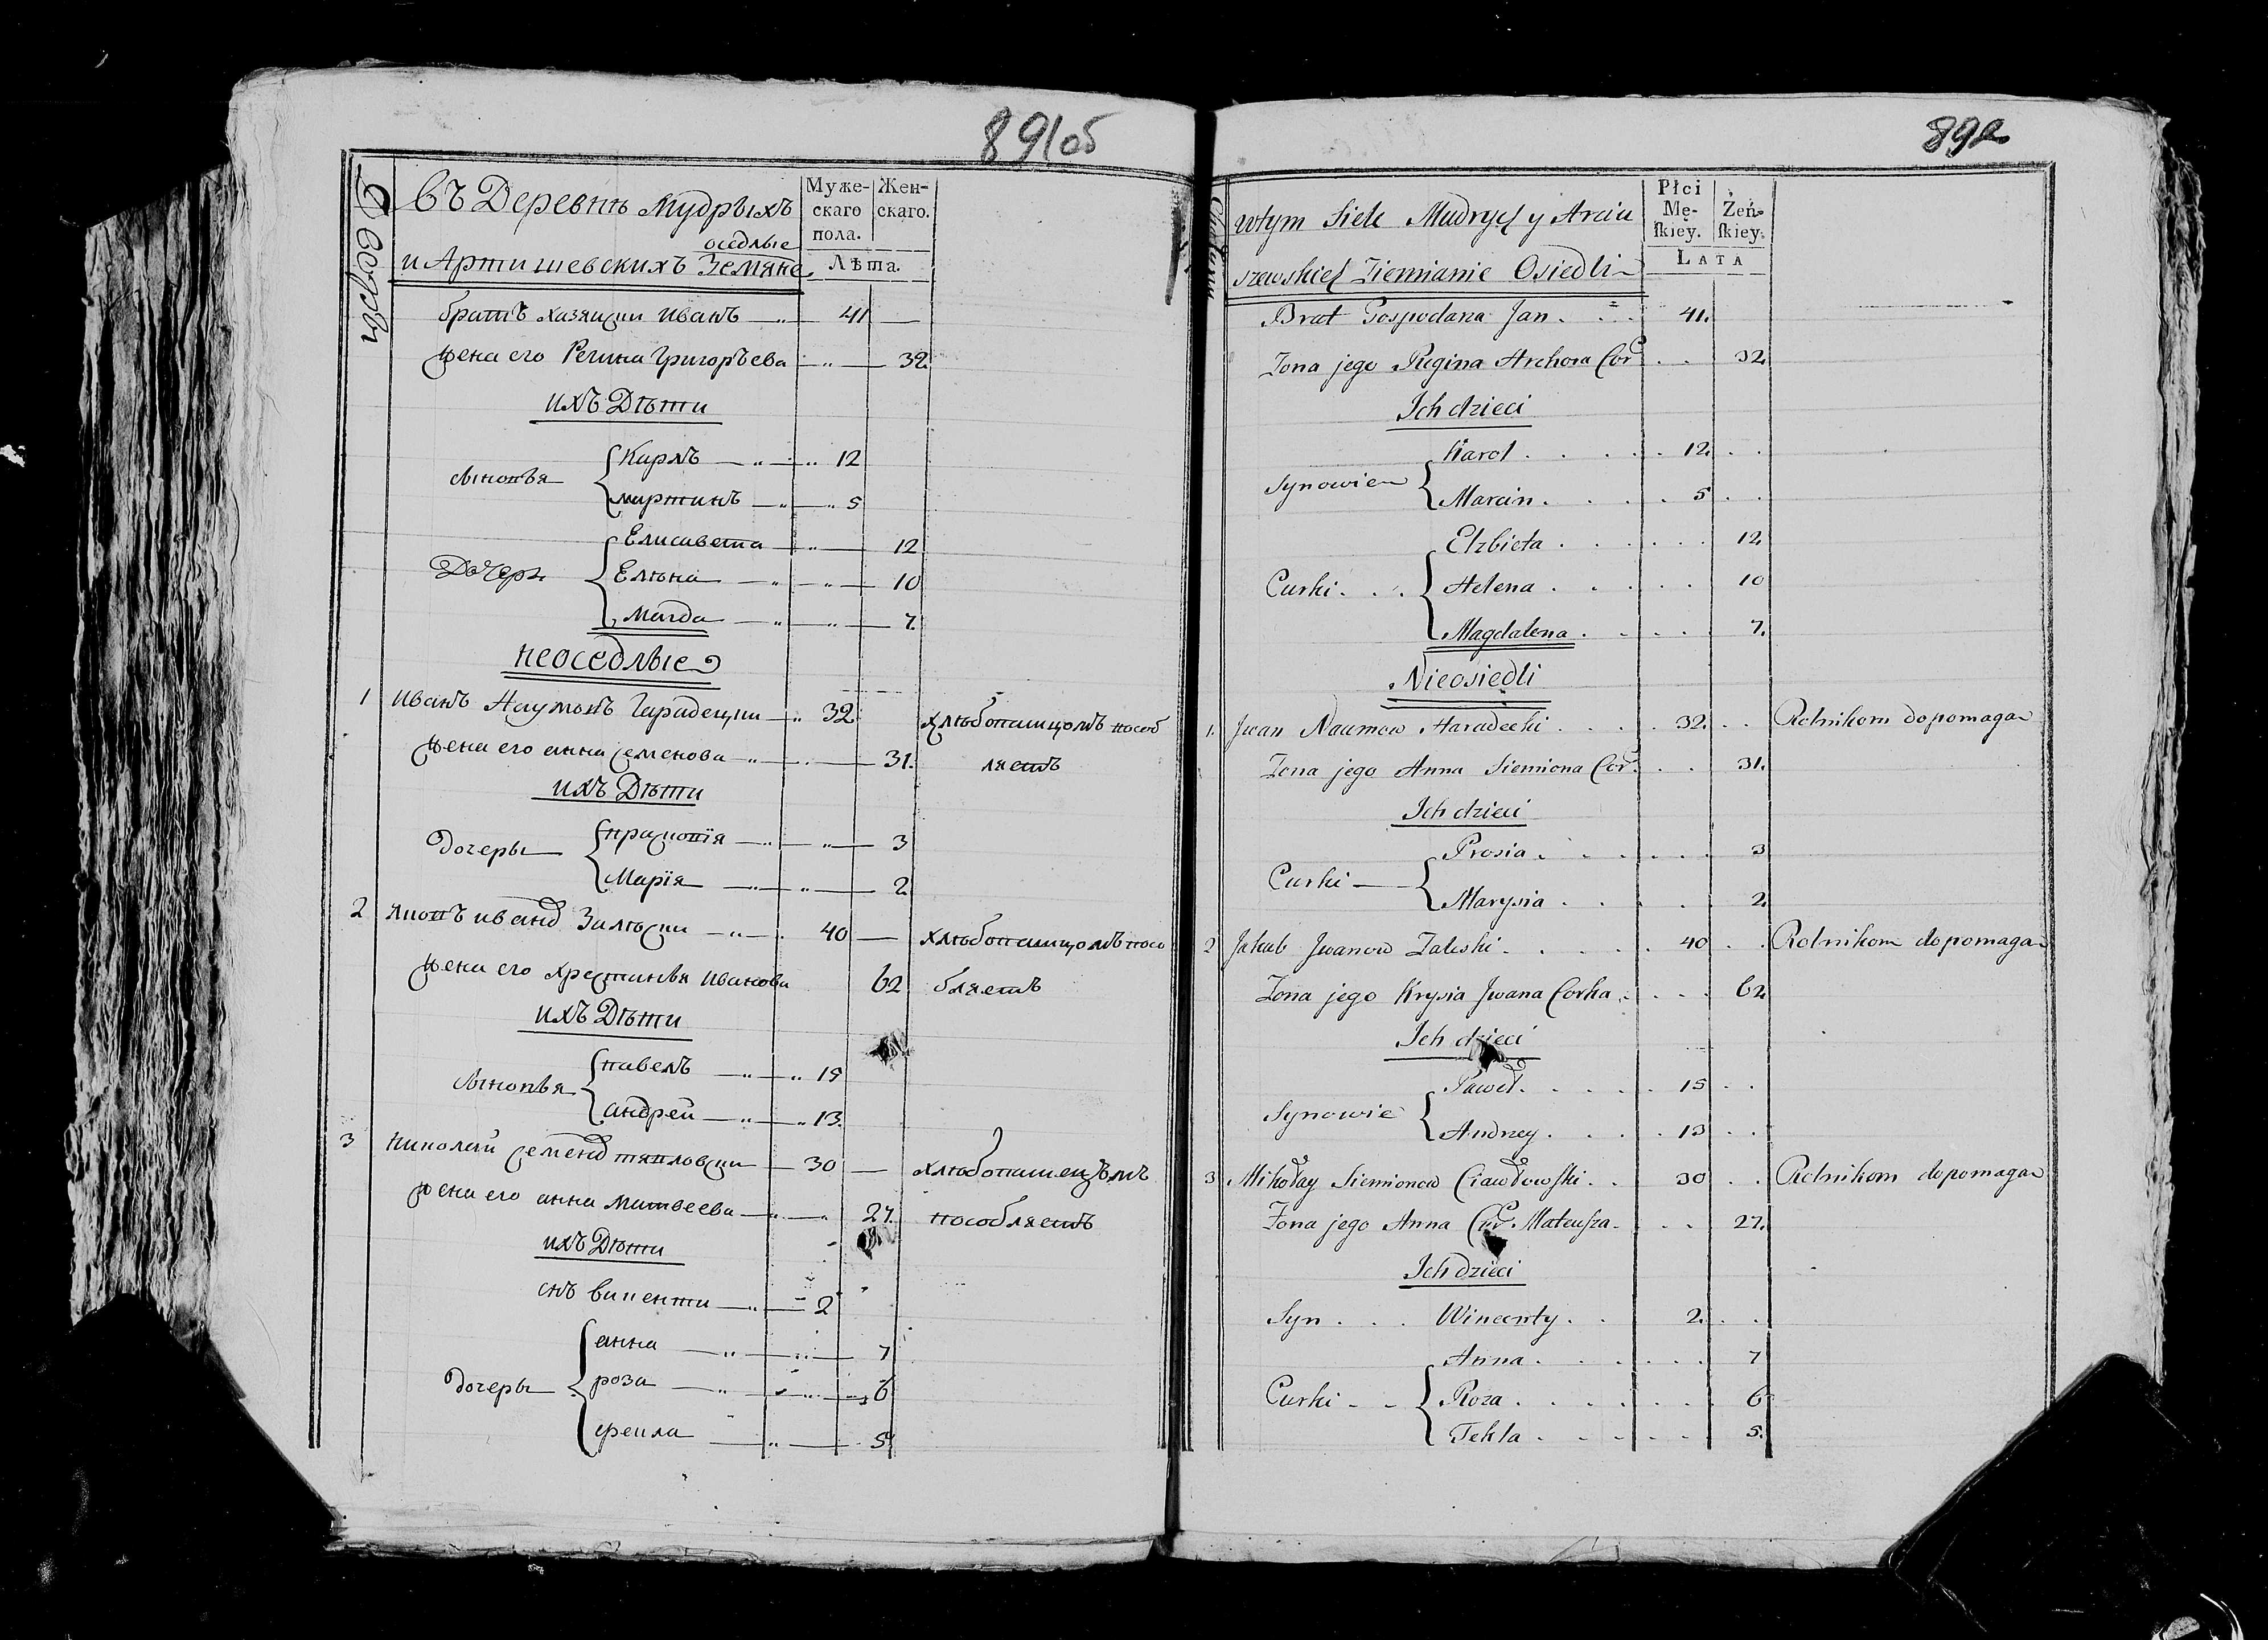 891об
Въ Деревнѣ Мудрыхъ
оседлые
и Артишевскихъ Земяне
Муже-
скаго
пола.
Жен-
скаго.
Лѣта.
братъ хазяиски Иванъ 41
жена его Регина Григорьева 32
ихъ Дѣти
сыновья
Карлъ 12
мартинъ 5
Дочери
Елисавета 12
Елѣна 10
Магда 7.
неоседлые
1 Иванъ Наумовъ Гарадецки 32 хлѣбопашцомъ пособ
жена его анна семенова 31. ляетъ
ихъ Дѣти
дочеры
прасковія 3
Марія 2
2 Яковъ иванов Залѣски 40 хлѣбопашцомъ посо
жена его христинья Иванова 62 бляетъ
ихъ Дѣти
сыновья
павелъ 15
андрей 13.
3 николай семенов тявловски 30 хлѣбопашецъмъ
жена его анна матвеева 27. пособляетъ
ихъ Дѣти
снъ викенти 2
дочеры
анна 7
роза 6
фекла 5
892
wtym Siele Mudrych y Arciu
szewskich Ziemianie Osiedli
Płci
Mę-
ſkiey.
Żeń-
ſkiey.
LATA
Brat Gospodarza Jan . . . 41.
Zona jego Regina Archora Cor . . 32
Ich dzieci
Synowie
Karol . . . . . 12. . .
Marcin . . . . 5 . .
Curki . . .
Elzbieta . . . . . . 12
Helena . . . . . 10
Magdalena . . . . . 7.
Nieosiedli
1. Jwan Naumow Haradecki . . . . 32. . . Rolnikom dopomaga
Zona jego Anna Siemiona Cor. . . 31.
Ich dzieci
Curki
Prosia . . . . . . 3
Marysia . . . . . 2.
2 Jakub Jwanow Zaleski . . . . . 40 . . Rolnikom dopomaga
Zona jego Krysia Jwana Corka . . . . 62
Ich dzieci
Synowie
Paweł . . . . . 15 . .
Andrzey . . . . . 13 . .
3 Mikołay Siemionow Ciawłowſki . . 30 . . Rolnikom dopomaga
Zona jego Anna Cor. Mateuſza . . . 27.
Ich dzieci
Syn . . . Wincenty . . 2. . .
Curki
Anna . . . . . . 7
Roza . . . . . . . 6
Tekla . . . . . . 5.